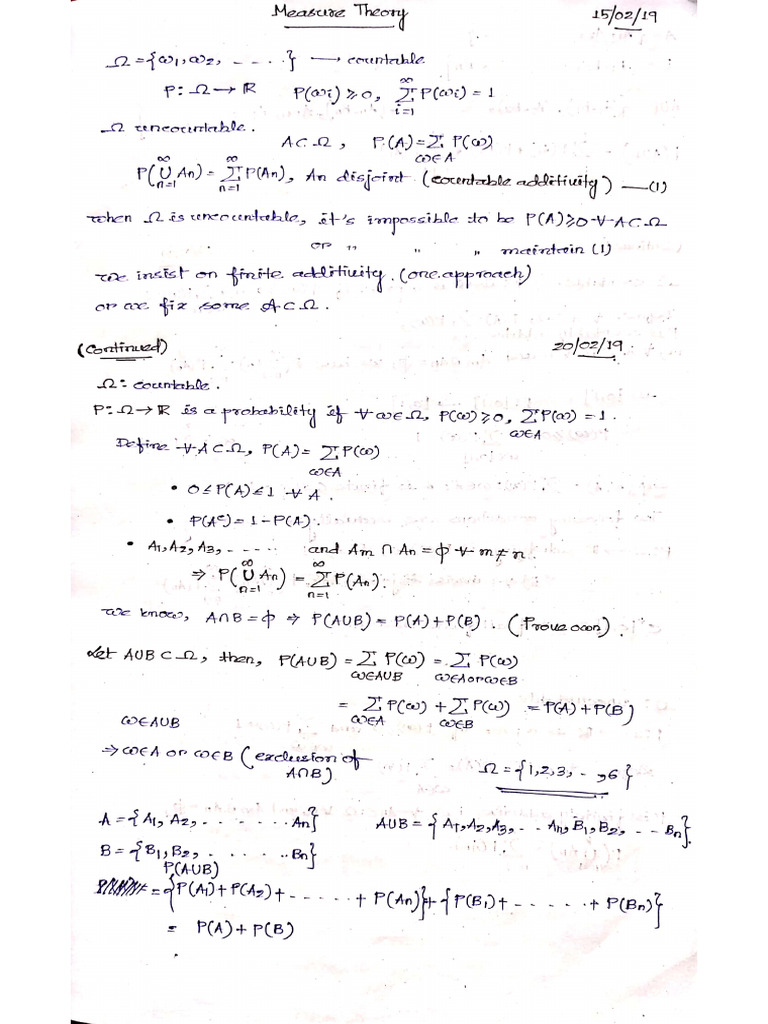 Measure Theory 15/02/19
Ω = {ω1, ω2, ----} ⟶ countable
P: Ω → ℝ P(ωi) ≥ 0, ∑_{i=1}^{∞} P(ωi) = 1
Ω uncountable.
A ⊂ Ω, P(A) = ∑_{ω∈A} P(ω)
P(∪_{n=1}^{∞} An) = ∑_{n=1}^{∞} P(An), An disjoint (countable additivity) —(1)
when Ω is uncountable, it's impossible to be P(A) ≥ 0 ∀ A ⊂ Ω
or " " " maintain (1)
we insist on finite additivity. (one approach)
or we fix some A ⊂ Ω.
(Continued) 20/02/19.
Ω: countable.
P: Ω → ℝ is a probability if ∀ ω∈Ω, P(ω) ≥ 0, ∑_{ω∈A} P(ω) = 1.
Define ∀ A ⊂ Ω, P(A) = ∑_{ω∈A} P(ω)
• 0 ≤ P(A) ≤ 1 ∀ A.
• P(A^c) = 1 - P(A).
• A1, A2, A3, ------ and Am ∩ An = ϕ ∀ m ≠ n
⇒ P(∪_{n=1}^{∞} An) = ∑_{n=1}^{∞} P(An).
we know, A∩B = ϕ ⇒ P(A∪B) = P(A) + P(B). (Prove own).
Let A∪B ⊂ Ω, then, P(A∪B) = ∑_{ω∈A∪B} P(ω) = ∑_{ω∈A or ω∈B} P(ω)
= ∑_{ω∈A} P(ω) + ∑_{ω∈B} P(ω) = P(A) + P(B)
ω∈A∪B
⇒ ω∈A or ω∈B (exclusion of A∩B)
Ω = {1,2,3, - -,6}
A = {A1, A2, ....... An} A∪B = {A1, A2, A3, - - An, B1, B2, - - Bn}.
B = {B1, B2, ....... Bn}
P(A∪B)
= {P(A1) + P(A2) + ----- + P(An)} + {P(B1) + ----- + P(Bn)}
= P(A) + P(B)